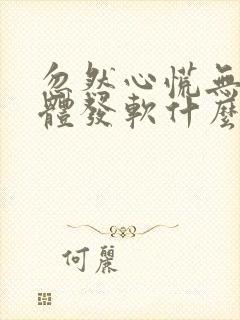 忽然心慌無
體發軟什麼
何麗